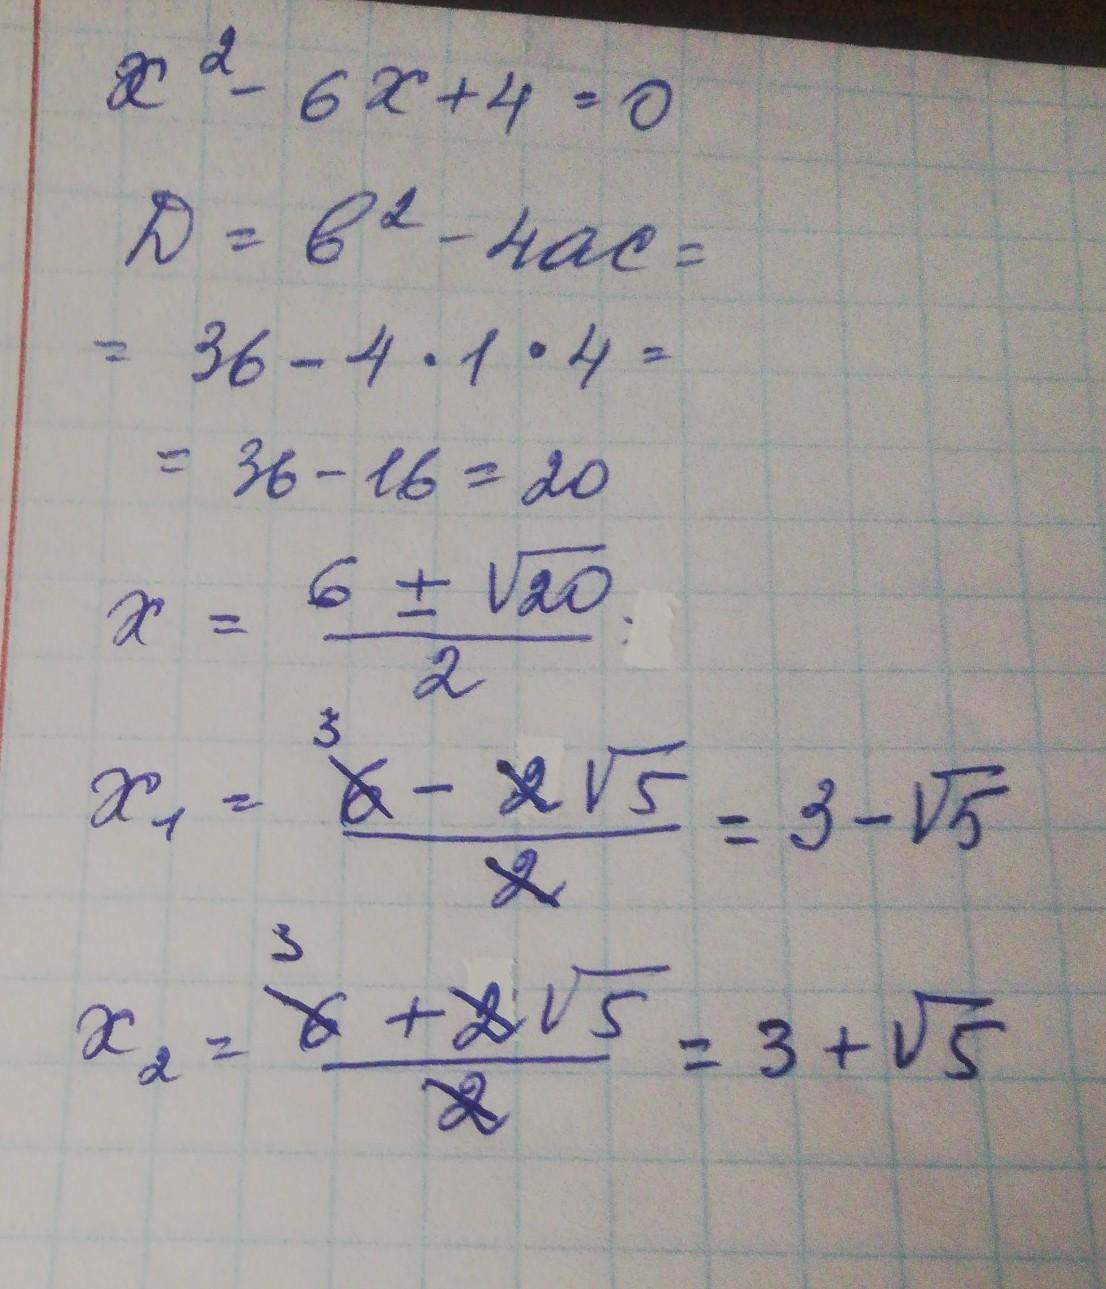 x² - 6x + 4 = 0
D = b² - 4ac =
= 36 - 4 · 1 · 4 =
= 36 - 16 = 20
x = (6 ± √20) / 2
x₁ = (6 - 2√5) / 2 = 3 - √5
x₂ = (6 + 2√5) / 2 = 3 + √5